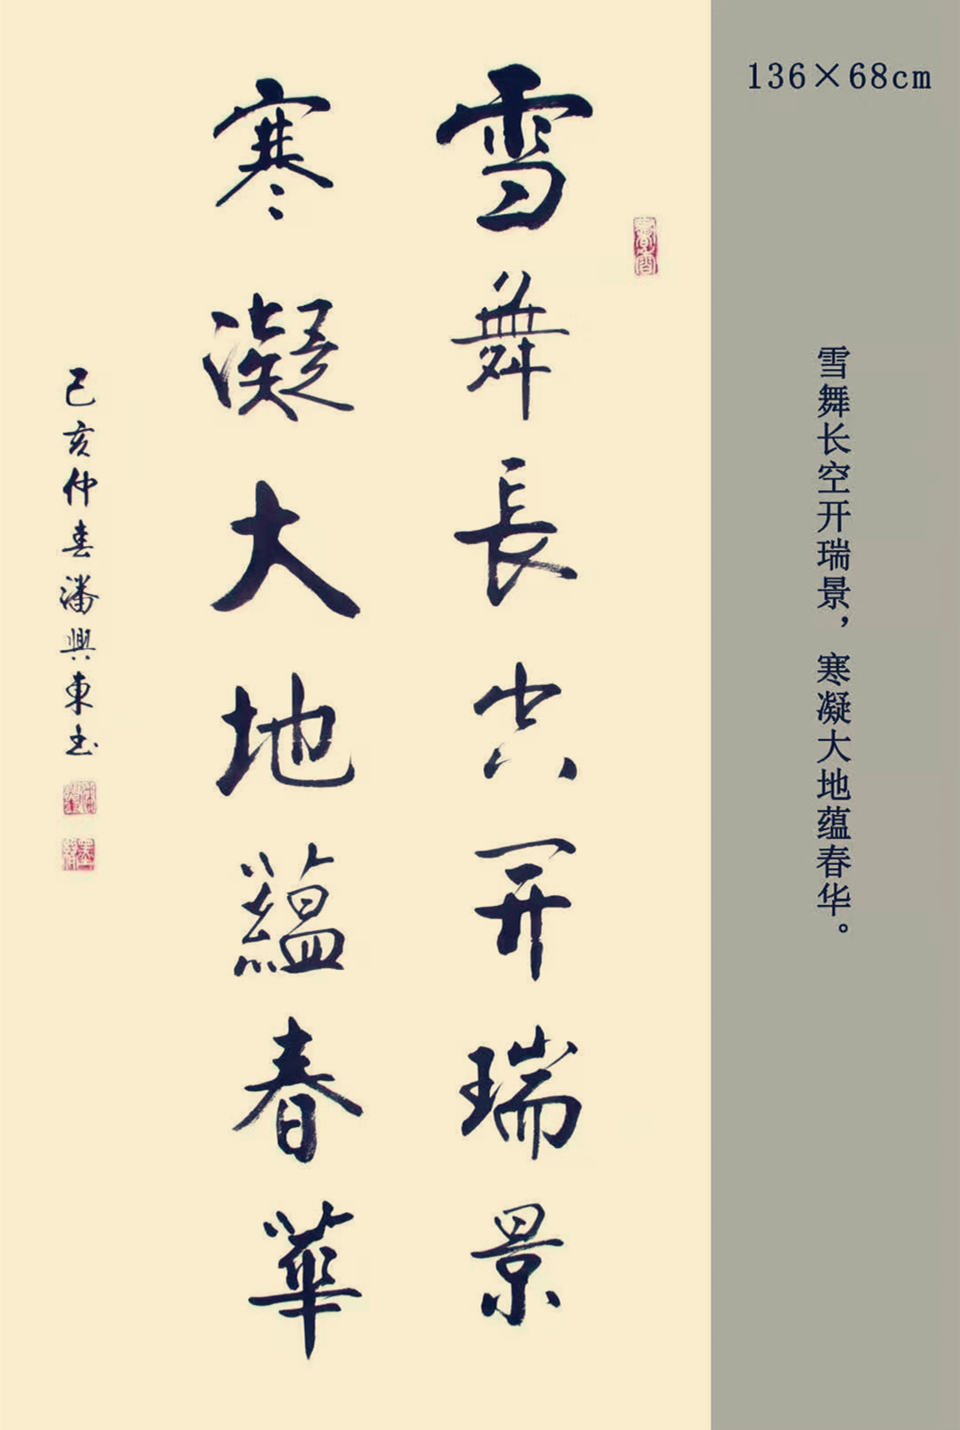 136×68cm
雪舞长空开瑞景，寒凝大地蕴春华。
雪舞長空開瑞景
寒凝大地蘊春華
己亥仲春潘興東書